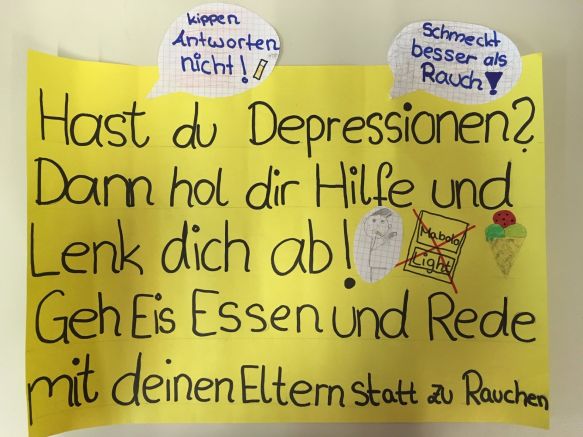 kippen
Antworten
nicht!
Schmeckt
besser als
Rauch!
Hast du Depressionen?
Dann hol dir Hilfe und
Lenk dich ab!
Mabolo
Light
Geh Eis Essen und Rede
mit deinen Eltern statt zu Rauchen